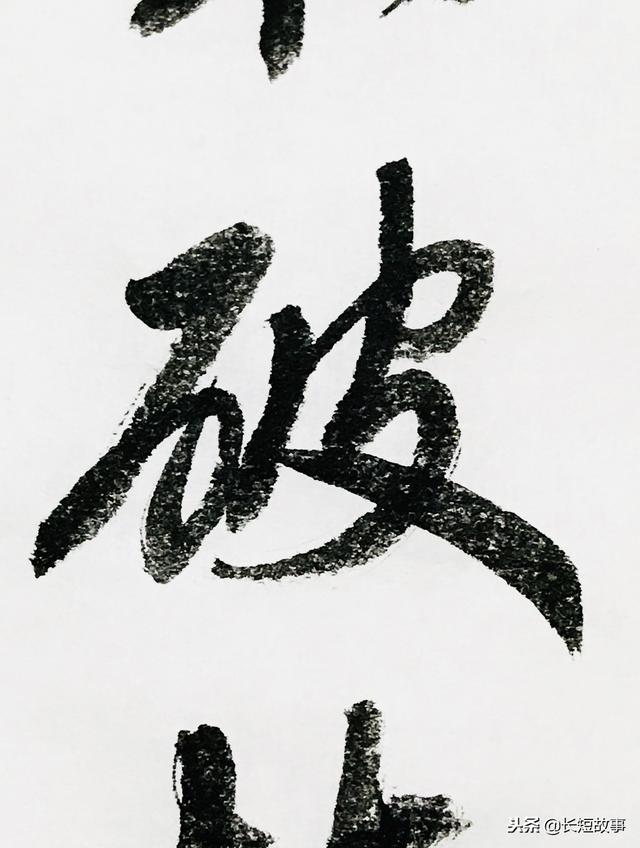 破
头条 @长短故事